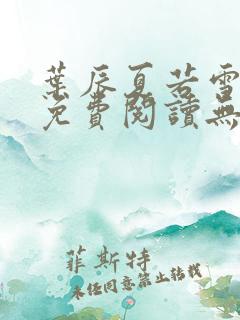 葉辰夏若雪
免費閱讀無
菲斯特
未經同意禁止轉載